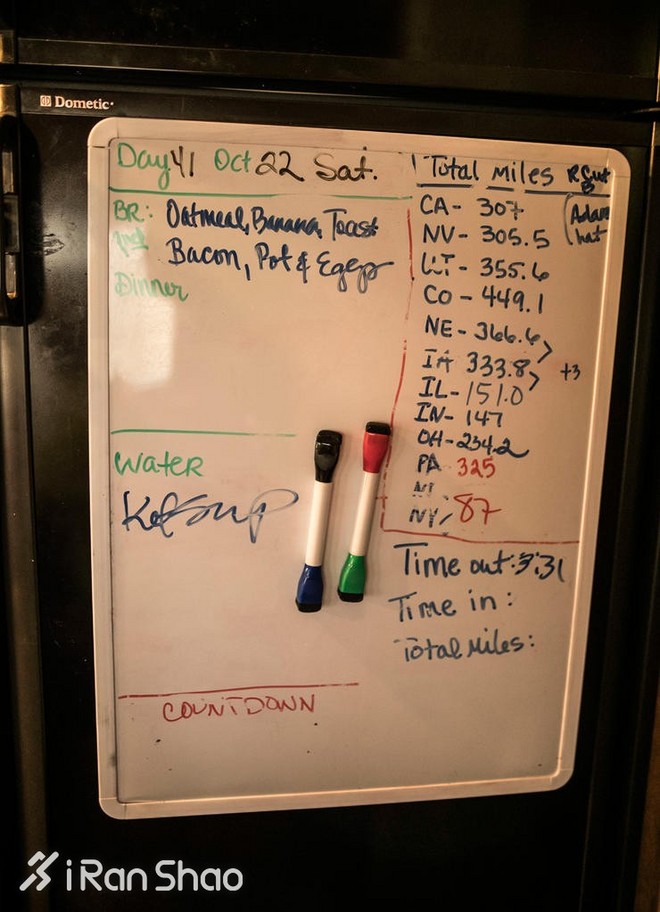 Dometic
Day 41 Oct 22 Sat.
BR: Oatmeal, Banana, Toast
Bacon, Pot & Eggs
Dinner
Water
Ketsup
COUNTDOWN
Total Miles
CA - 307
NV - 305.5
UT - 355.6
CO - 449.1
NE - 366.6
IA 333.8
+3
IL - 151.0
IN - 147
OH - 234.2
PA 325
NJ
NY 87
Adam
hat
Time out: 3:31
Time in:
Total Miles:
iRanShao